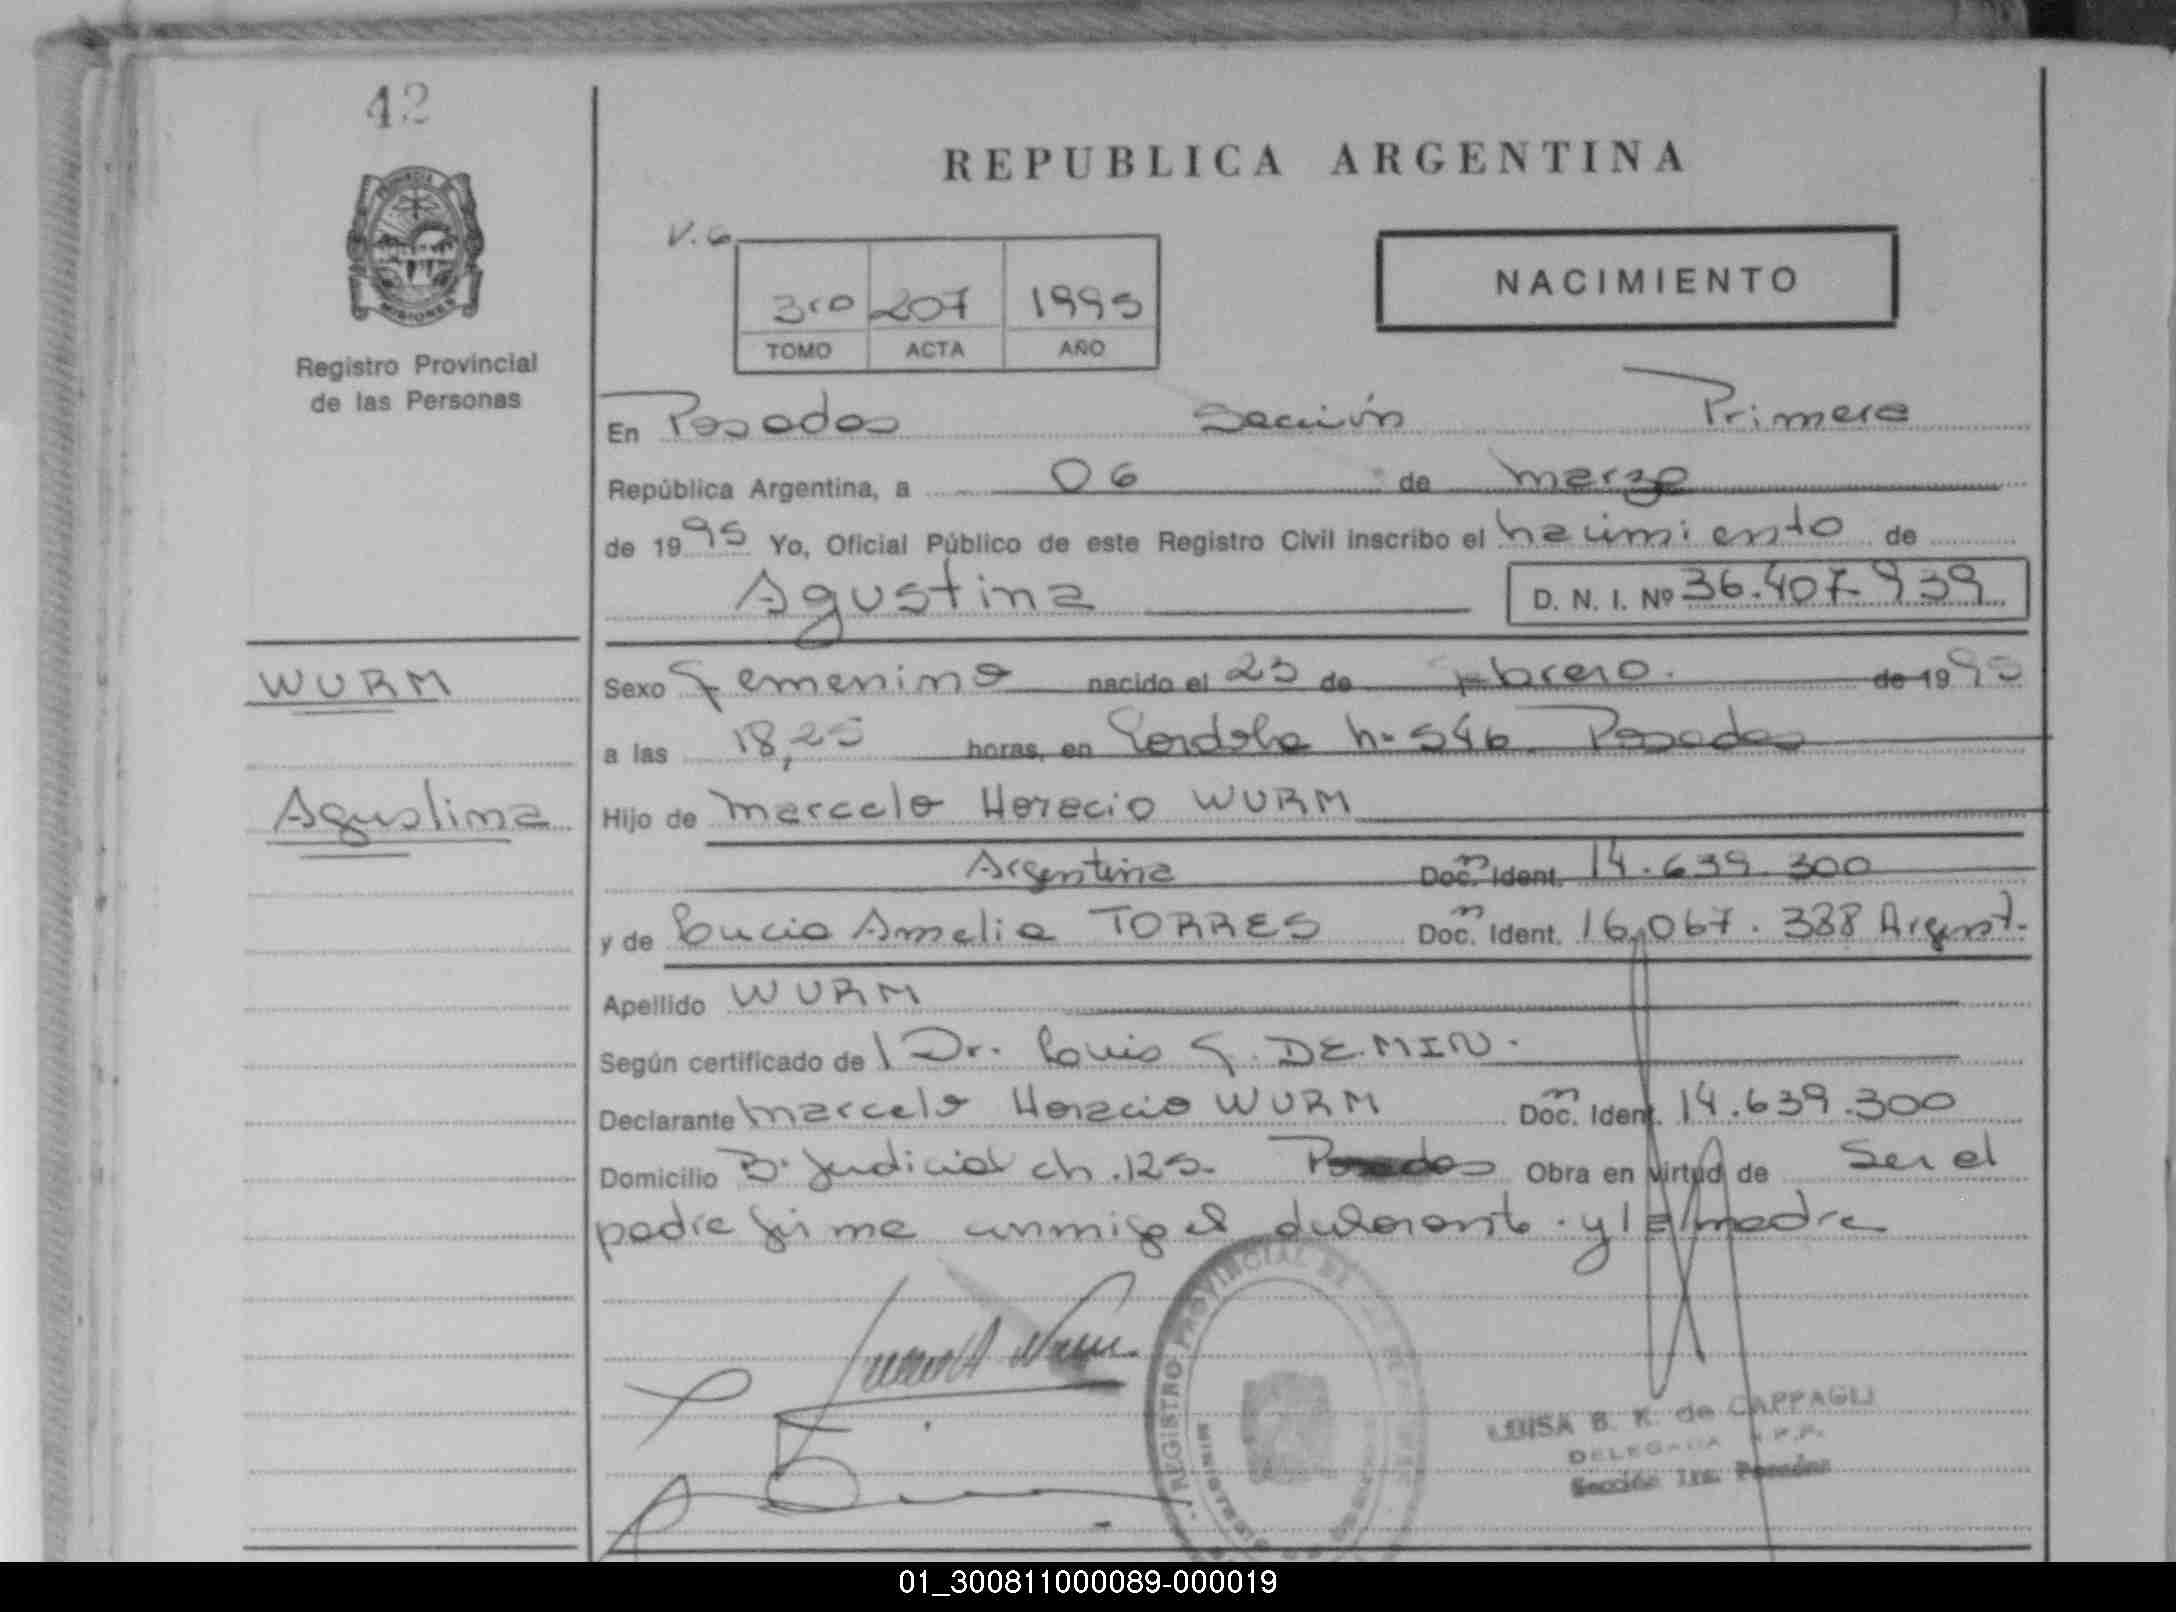 42
REPUBLICA ARGENTINA
V. 6
3ro 207 1995
TOMO ACTA AÑO
NACIMIENTO
MISIONES
Registro Provincial
de las Personas
En Posadas Sección Primera
República Argentina, a 06 de marzo
de 1995 Yo, Oficial Público de este Registro Civil inscribo el nacimiento de
Agustina D. N. I. Nº 36.407.939
WURM
Sexo Femenino nacido el 23 de febrero. de 1995
a las 18,25 horas, en Cordoba nº 546 Posadas
Agustina
Hijo de Marcelo Horacio WURM
Argentina Doc. Ident. 14.639.300
y de Lucia Amelia TORRES Doc. Ident. 16.067.338 Argent.
Apellido WURM
Según certificado de Dr. Louis G. DEMIN.
Declarante Marcelo Horacio WURM Doc. Ident. 14.639.300
Domicilio Bº Judicial ch. 125. Posadas Obra en virtud de Ser el
padre firma conmigo el declarante y la madre
REGISTRO PROVINCIAL DE
LUISA B. K. de CAPPAGLI
DELEGADA R.P.P.
Sección 1ra. Posadas
01_300811000089-000019